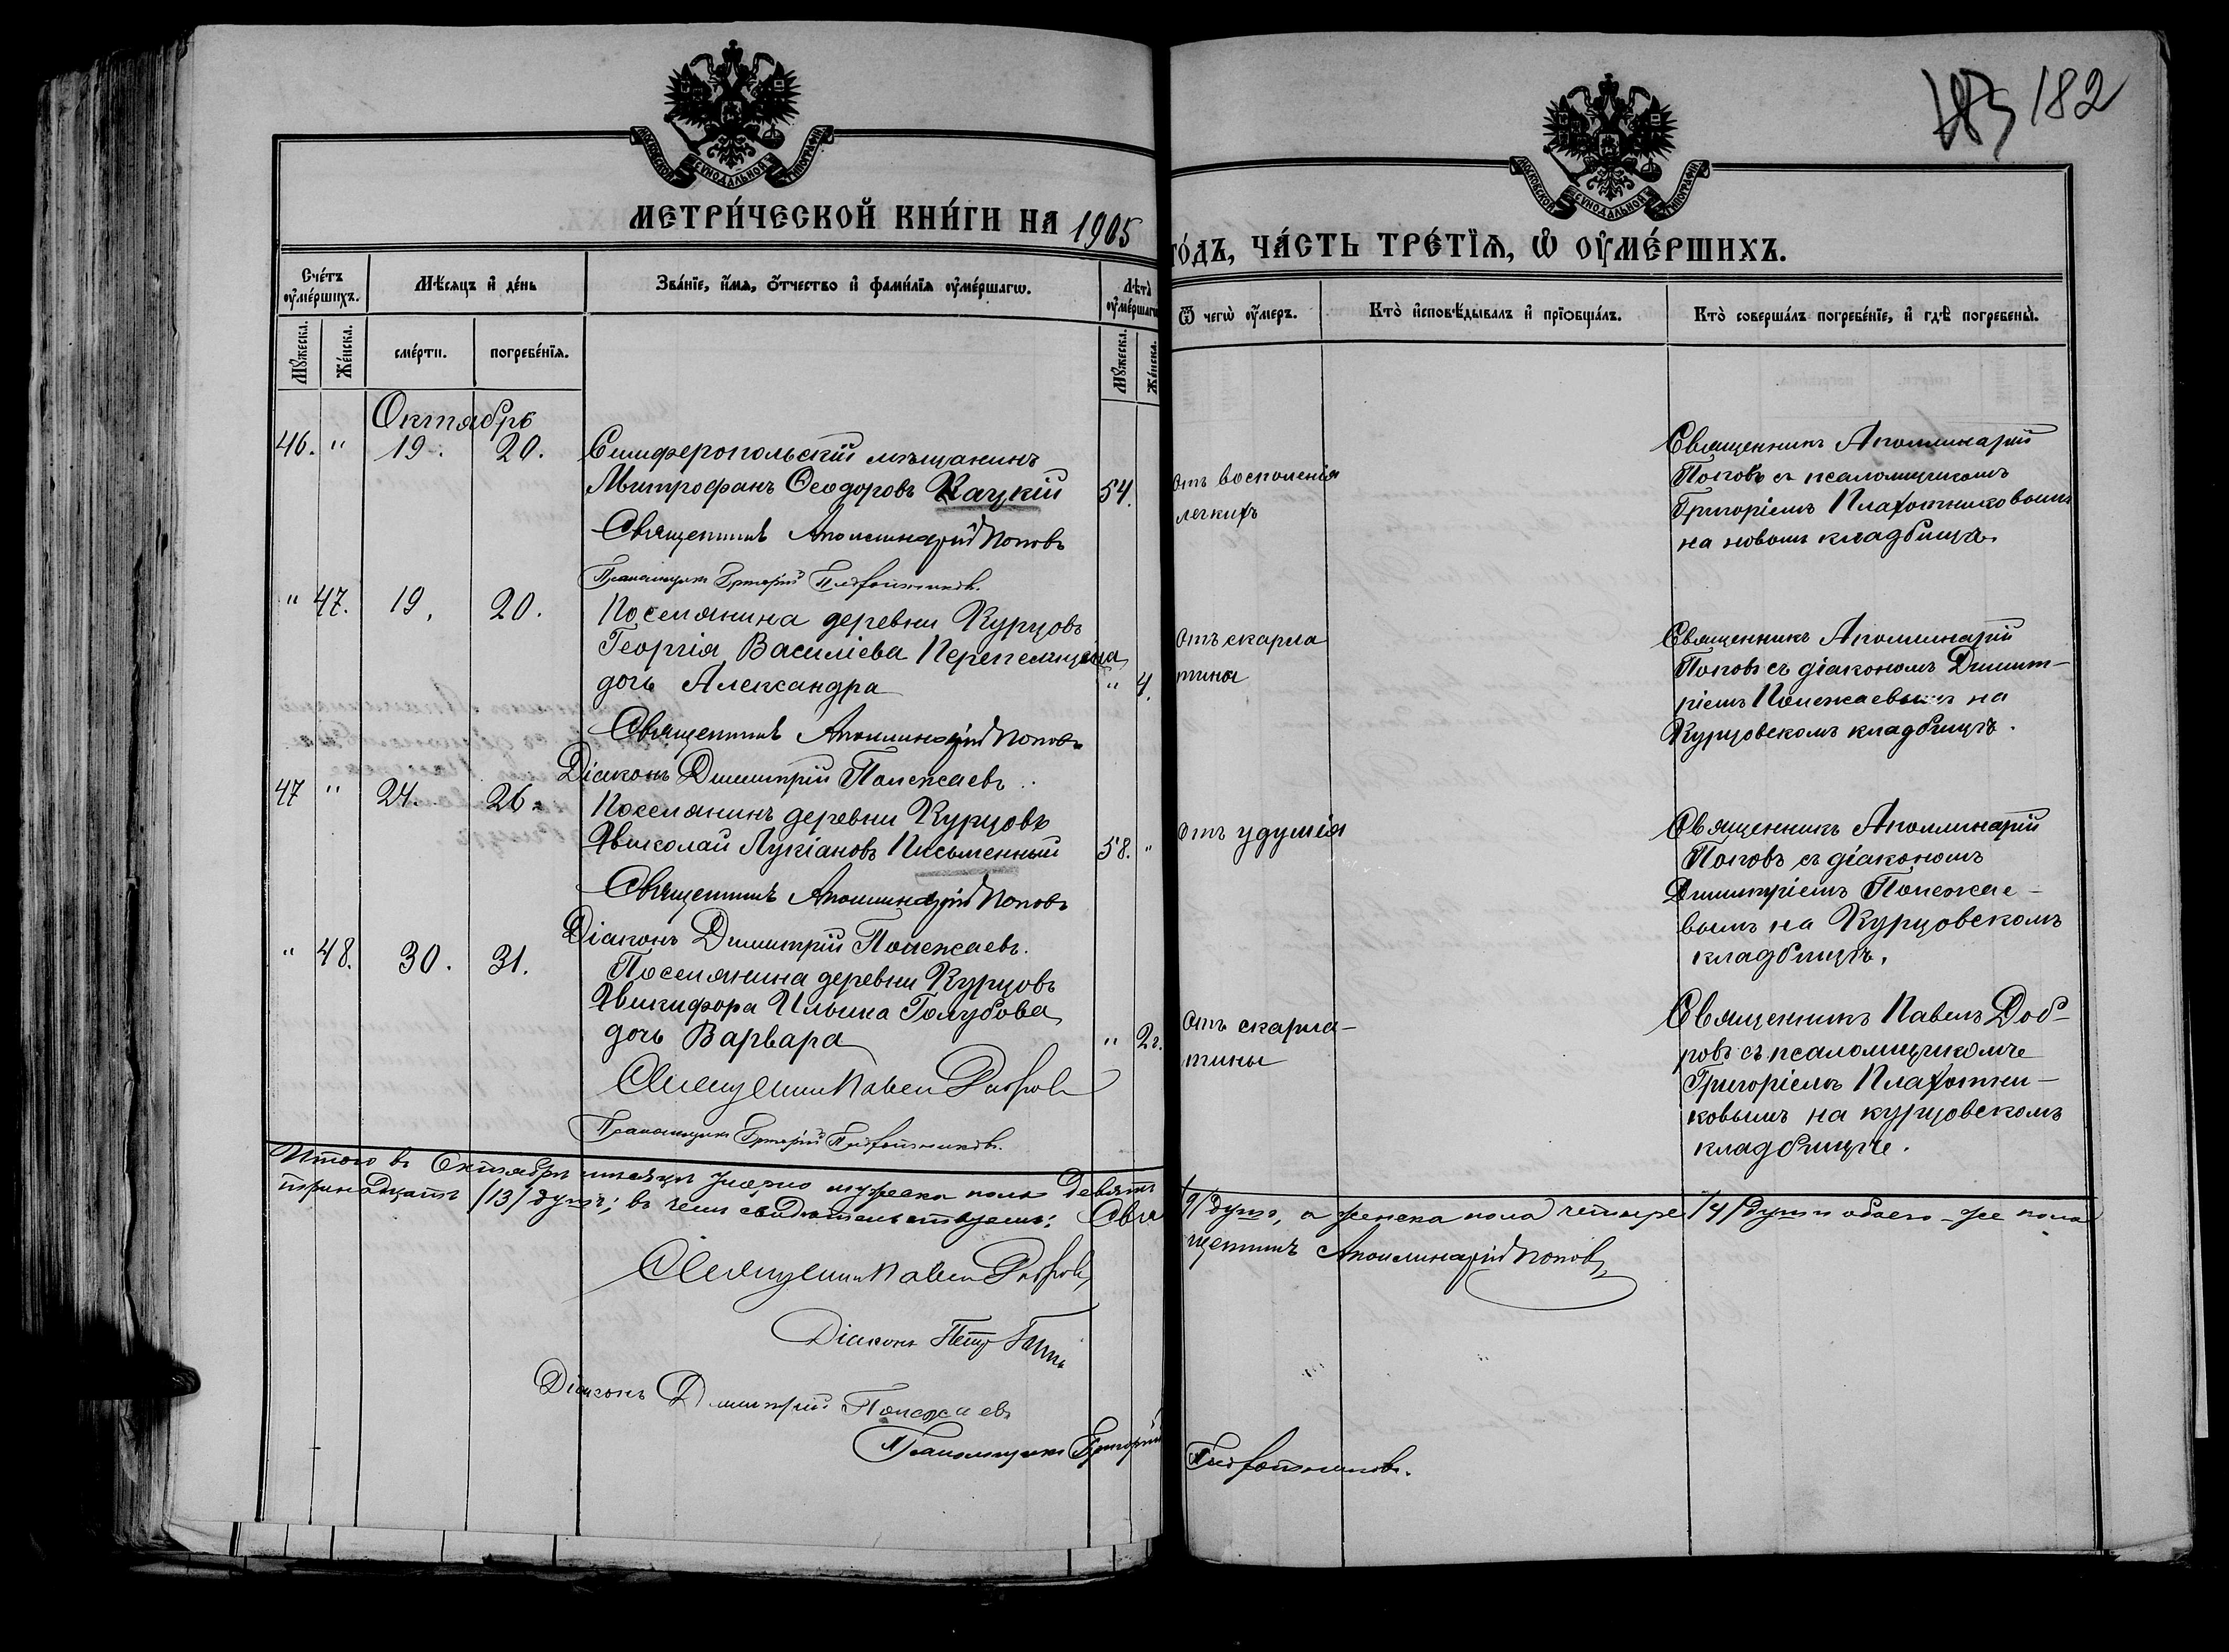 183 182
МОСКОВСКОЙ СУНОДАЛЬНОЙ ТИПОГРАФІИ
МОСКОВСКОЙ СУНОДАЛЬНОЙ ТИПОГРАФІИ
МЕТРИ́ЧЕСКОЙ КНИ́ГИ НА 1905
ГО́ДЪ, ЧА́СТЬ ТРЕ́ТІѦ, Ѡ ОУМЕ́РШИХЪ.
Сче́тъ оумершихъ.
Мѣсяцъ и де́нь
Зва́нїе, и́мя, о́тчество и фами́лїя оумершагѡ.
Лѣта̀ оумершагѡ
Ѿ чегѡ̀ оумеръ.
Кто̀ исповѣдывалъ и прїобща́лъ.
Кто̀ соверша́лъ погребе́нїе, и гдѣ погребены̀.
Мꙋжеска. Же́нска. сме́рти. погребе́нїя. Мꙋжеска. Же́нска.
Октябрь
46. " 19. 20. Симферопольскій мѣщанинъ
Митрофанъ Ѳеодоровъ Кацкій 54.
Священникъ Аполлинарій Поповъ
Псаломщикъ Григорій Плахотниковъ.
Отъ восполенія
легкихъ
Священникъ Аполлинарій
Поповъ съ псаломщикомъ
Григоріемъ Плахотниковымъ
на новомъ кладбищѣ.
" 47. 19. 20. Поселянина деревни Курцовъ
Георгія Василіева Перепелицына
дочь Александра " 4.
Священникъ Аполлинарій Поповъ
Діаконъ Димитрій Полежаевъ.
Отъ скарла
тины
Священникъ Аполлинарій
Поповъ съ діакономъ Димит-
ріемъ Полежаевымъ на
Курцовскомъ кладбищѣ.
47 " 24. 26. Поселянинъ деревни Курцовъ
Николай Лукіановъ Письменный 58. "
Священникъ Аполлинарій Поповъ
Діаконъ Димитрій Полежаевъ.
Отъ удушія
Священникъ Аполлинарій
Поповъ съ діакономъ
Димитріемъ Полежае-
вымъ на Курцовскомъ
кладбищѣ.
" 48. 30. 31. Поселянина деревни Курцовъ
Никифора Ильина Голубова
дочь Варвара " 2 г.
Священникъ Павелъ Добровъ
Псаломщикъ Григорій Плахотниковъ.
Отъ скарла-
тины
Священникъ Павелъ Доб-
ровъ съ псаломщикомъ
Григоріемъ Плахотни-
ковымъ на курцовскомъ
кладбищѣ.
Итого въ Октябрѣ мѣсяцѣ умерло мужеска пола девять /9/ душъ, а женска пола четыре /4/ души обоего-же пола
тринадцать /13/ душъ; въ чемъ свидѣтельствуемъ: Священникъ Аполлинарій Поповъ
Священникъ Павелъ Добровъ
Діаконъ Петръ
Діаконъ Димитрій Полежаевъ
Псаломщикъ Григорій Плахотниковъ.